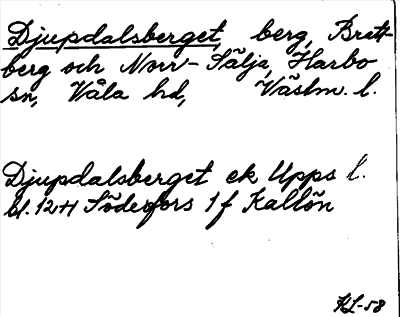 Djupdalsberget, berg, Brett-
berg och Norr-Sälja, Harbo
sn, Våla hd, Västm. l.
Djupdalsberget ek Upps l.
bl. 12H Söderfors 1 f Kallön
KL-58